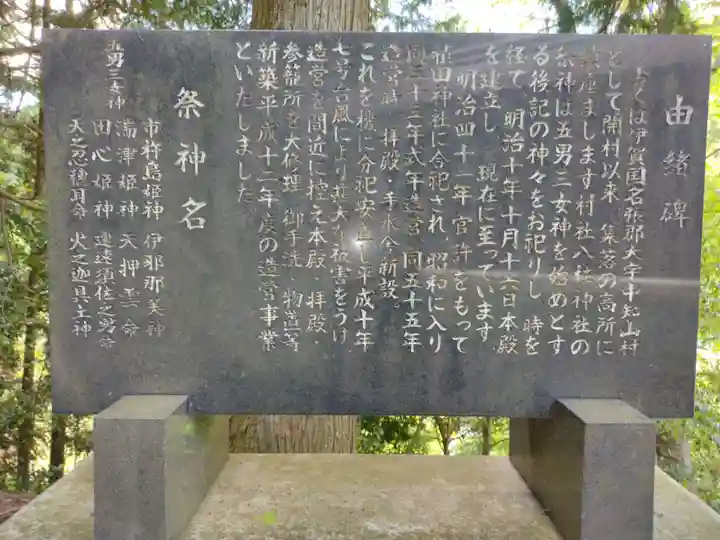 由緒碑
ふくは伊賀国名張郡大字丰知山村
として開村以来、集落の高所に
鎮座まします村社八柱神社の
祭神は五男三女神を始めとす
る後記の神々をお祀りし、時を
経て、明治十年十月十六日本殿
を建立し、現在に至っています
明治四十一年官許をもって
植田神社に合祀され、昭和に入り
同三十三年式年造営、同五十五年
造営時、拝殿・手水舎新設。
これを機に分祀安座し平成十年
七号台風により甚大な被害をうけ
造営を間近に控え本殿、拝殿・
参籠所を大修理、御手洗、物置等
新築平成十二年度の造営事業
といたしました
祭神名
五男三女神
市杵島姫神 伊那那美神
湍津姫神 天押雲命
田心姫神 建速須佐之男命
天之忍穂耳命 火之迦具土神